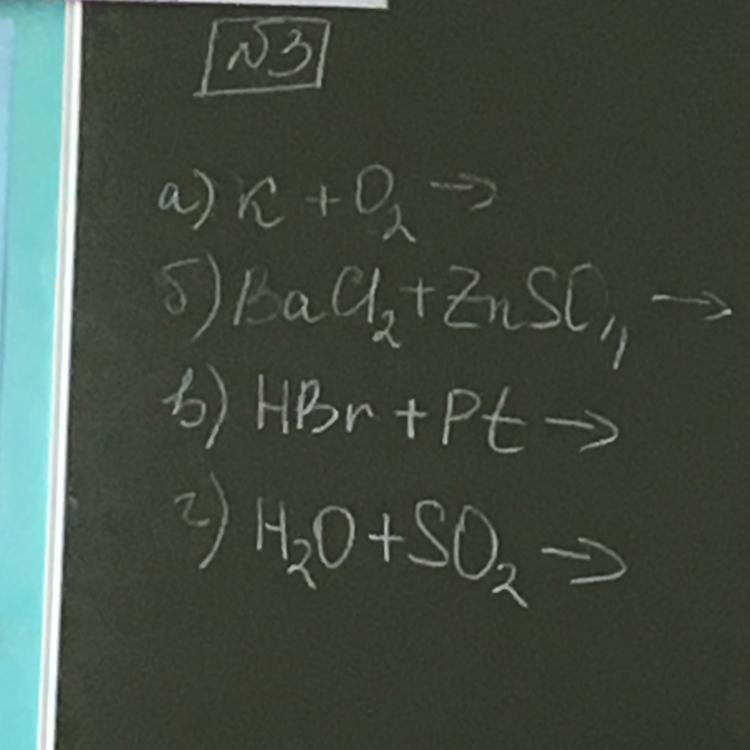 №3
а) K + O₂ →
б) BaCl₂ + ZnSO₄ →
в) HBr + Pt →
г) H₂O + SO₂ →